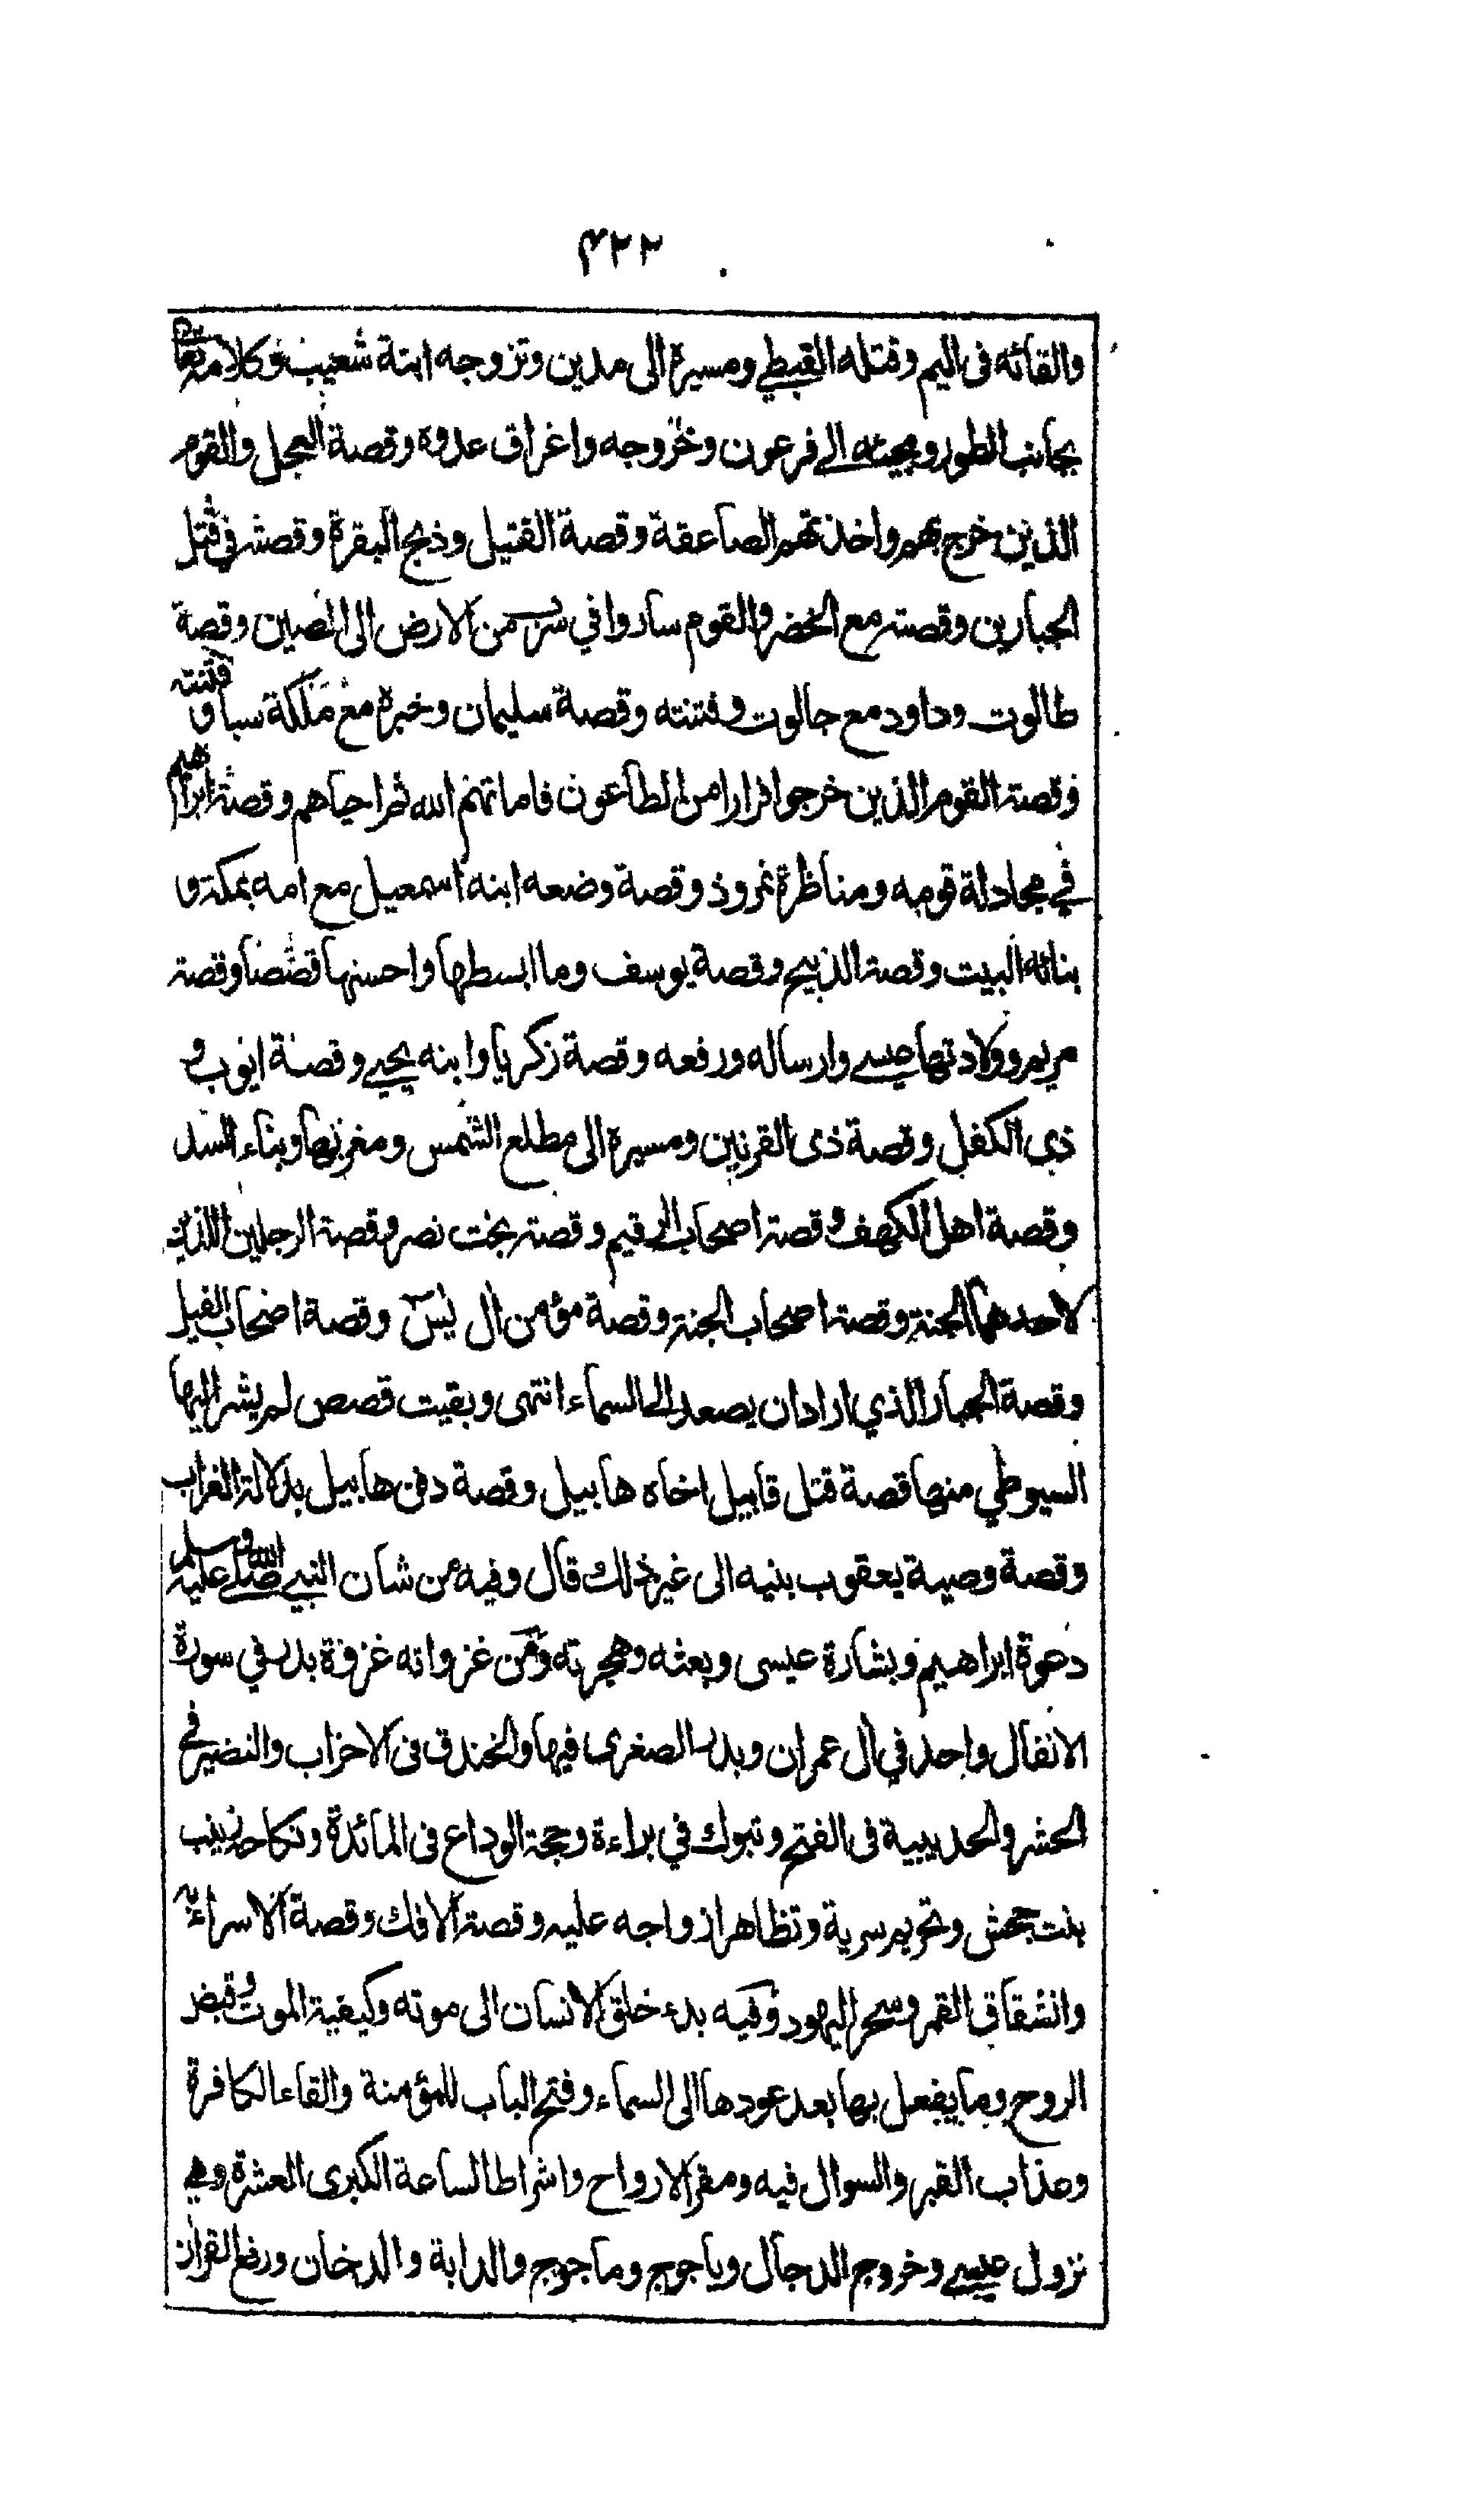 ۴۲۲
والقائه فى اليم وقتله القبطي ومسيره الى مدين وتزوجه ابنة شعيب وكلامه تعالى
بجانب الطور ومجيئه الى فرعون وخروجه واغراق عدوه وقصة العجل والقوم
الذين خرج بهم واخذتهم الصاعقة وقصة القتيل وذبح البقرة وقصته في قتل
الجبارين وقصته مع الخضر والقوم ساروا في سرب من الارض الى الصين وقصة
طالوت وداود مع جالوت وفتنته وقصة سليمان وخبره مع ملكة سبا وفتنته
وقصة القوم الذين خرجوا فرارا من الطاعون فاماتهم الله ثم احياهم وقصة ابراهيم
في مجادلة قومه ومناظرة نمروذ وقصة وضعه ابنه اسمعيل مع امه بمكة و
بنائه البيت وقصة الذبيح وقصة يوسف وما ابسطها واحسنها قصصا وقصة
مريم وولادتها عيسى وارساله ورفعه وقصة زكريا وابنه يحيى وقصة ايوب و
ذى الكفل وقصة ذى القرنين ومسيره الى مطلع الشمس ومغربها وبناء السد
وقصة اهل الكهف وقصة اصحاب الرقيم وقصة بخت نصر وقصة الرجلين اللذين
لاحدهما الجنة وقصة اصحاب الجنة وقصة مؤمن ال يس وقصة اصحاب الفيل
وقصة الجبار الذي اراد ان يصعد الى السماء انتهى وبقيت قصص لم يشر اليها
السيوطي منها قصة قتل قابيل اخاه هابيل وقصة دفن هابيل بدلالة الغراب
وقصة وصية يعقوب بنيه الى غير ذلك قال وفيه من شان النبي صلى الله عليه وسلم
دعوة ابراهيم وبشارة عيسى وبعثه وهجرته ومن غزواته غزوة بدر في سورة
الانفال واحد في ال عمران وبدر الصغرى فيها والخندق فى الاحزاب والنضير في
الحشر والحديبية فى الفتح وتبوك في براءة وحجة الوداع فى المائدة ونكاحه زينب
بنت جحش وتحريم سرية وتظاهر ازواجه عليه وقصة الافك وقصة الاسراء به
وانشقاق القمر وسحر اليهود وفيه بدء خلق الانسان الى موته وكيفية الموت وقبض
الروح وما يفعل بها بعد عودها الى السماء وفتح الباب للمؤمنة والقاء الكافرة
وعذاب القبر والسوال فيه ومقر الارواح واشراط الساعة الكبرى العشرة وهي
نزول عيسى وخروج الدجال وياجوج وماجوج والدابة والدخان ورفع القران